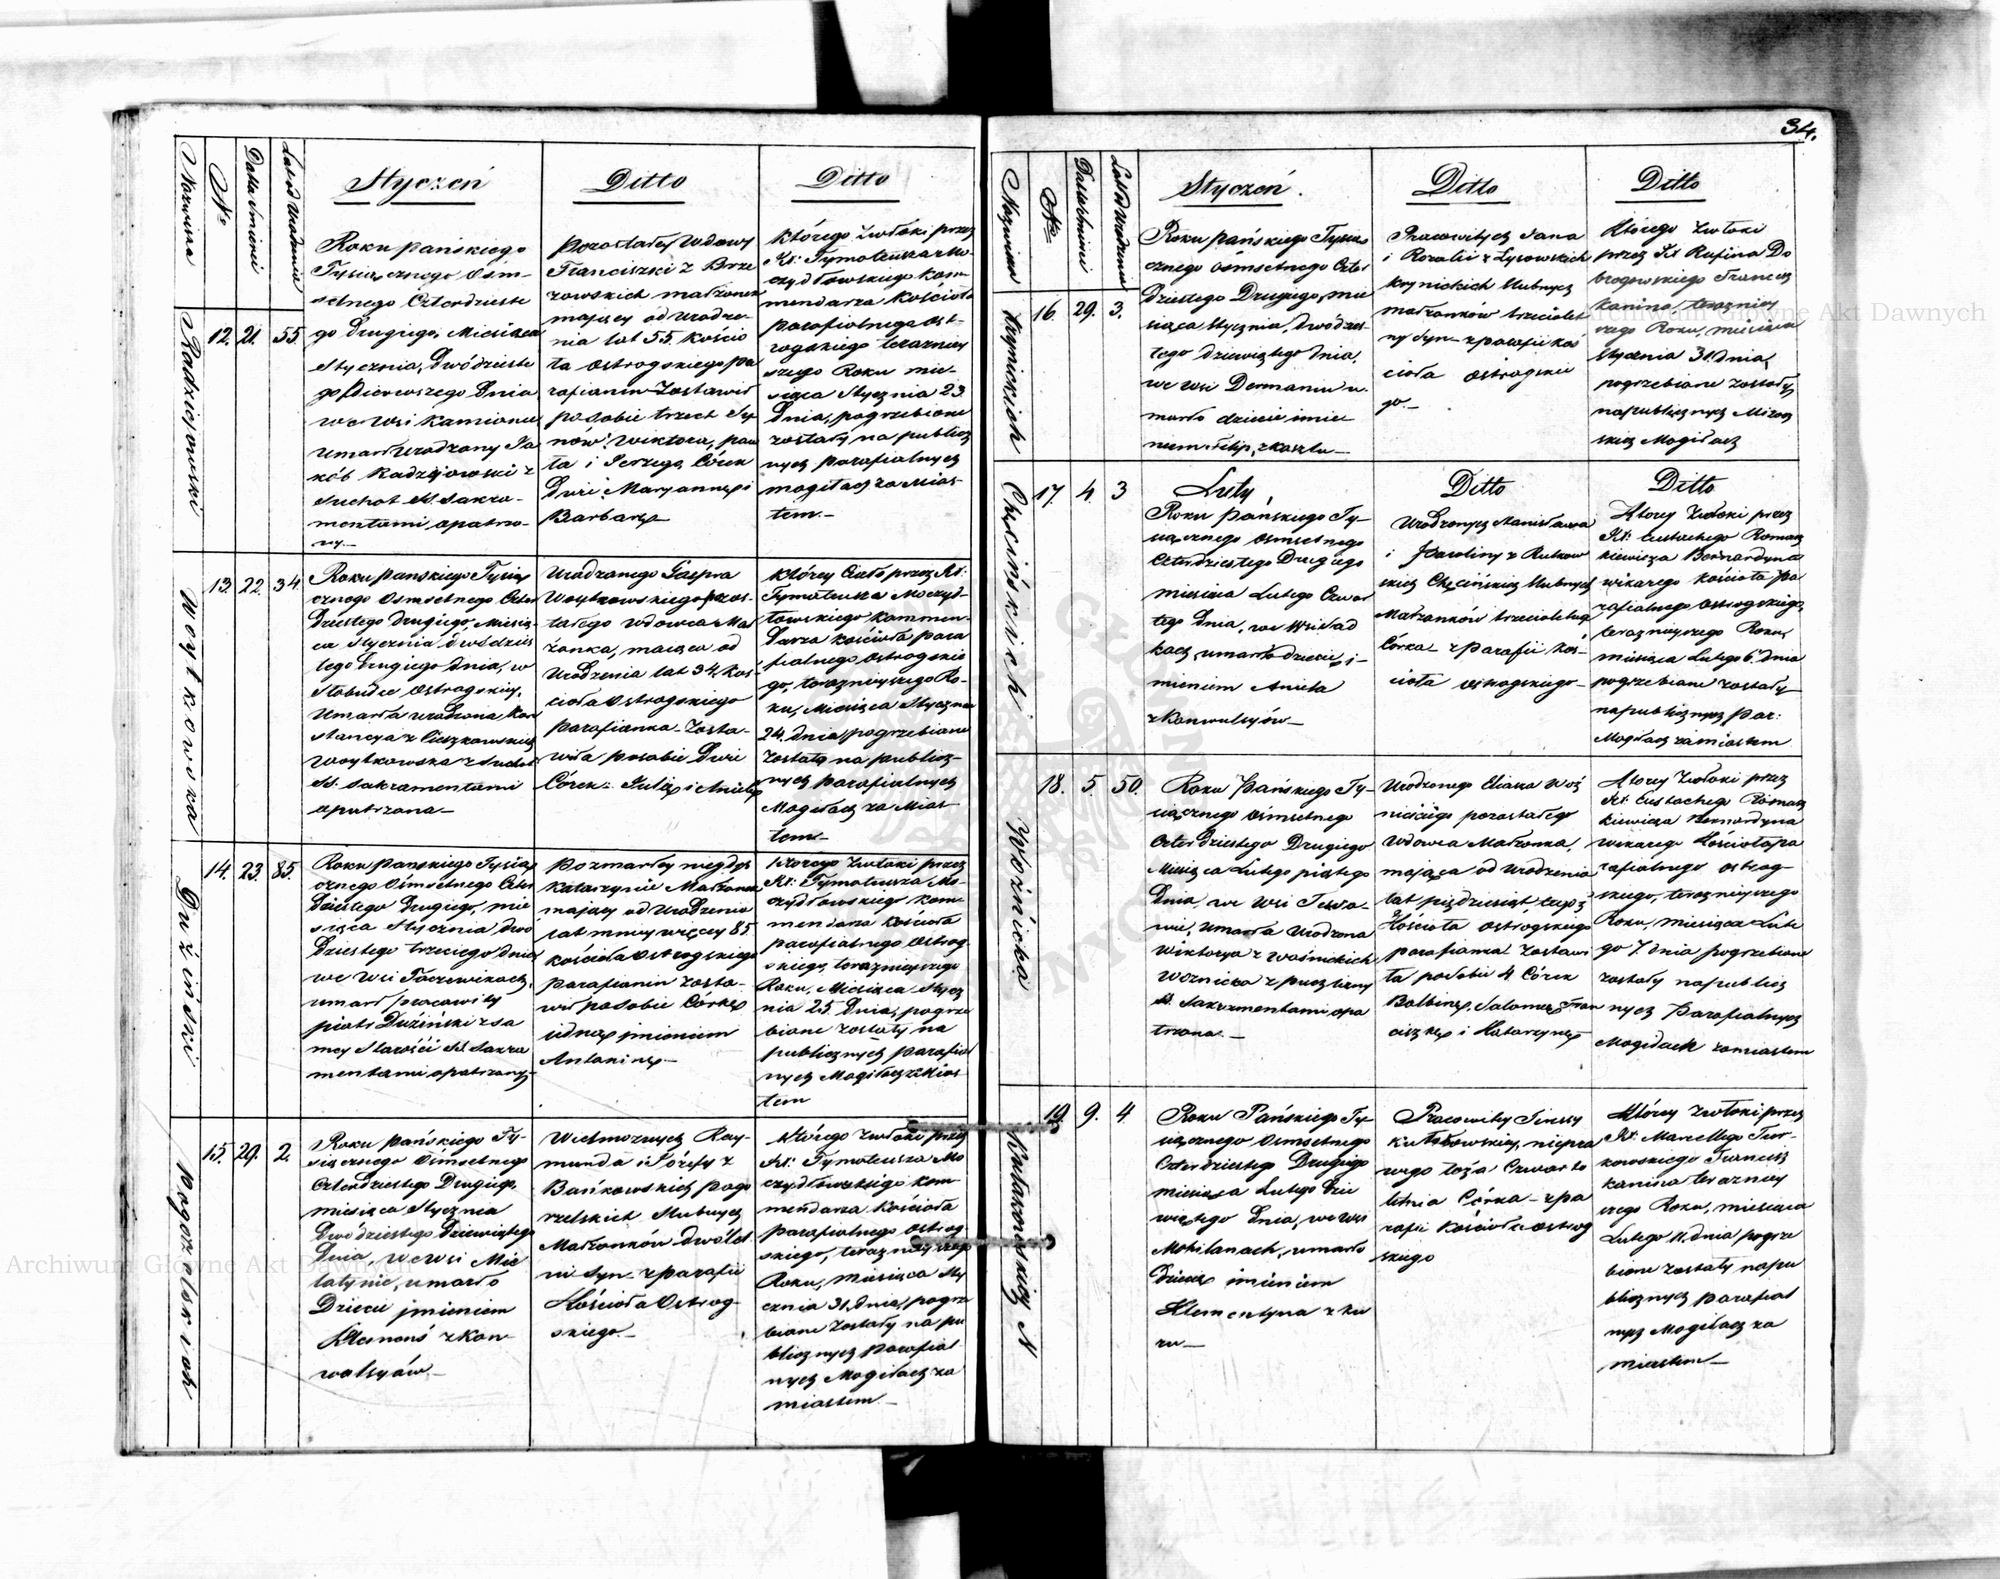 34.
Nazwiska
No
Datta śmierci
Lat od urodzenia
Styczeń
Ditto
Ditto
Radziejowski
12.
21.
55
Roku pańskiego
Tysiącznego Ośm-
setnego Czterdzieste
go Drugiego, Miesiąca
Stycznia, Dwódzieste
go Pierwszego Dnia
we Wsi Kamionce
umarł urodzony Ja
kób Radziejowski z
Suchot SS Sakra-
mentami opatrzo-
ny.—
pozostałey Wdowy
Franciszki z Brze
zowskich małżonek
maiący od urodze-
nia lat 55. Kościo
ła Ostrogskiego pa
rafianin Zostawił
po sobie trzech Sy
nów: Wiktora, paw
ła i Jerzego, Córek
Dwie: Maryannę i
Barbarę—
którego zwłoki przez
Xi: Tymoteusza Mo
czydłowskiego Kom
mendarza Kościoła
parafialnego Ost-
rogskiego teraźniey
szego Roku mie-
siąca Stycznia 23.
Dnia, pogrzebione
zostały na publicz
nych parafialnych
mogiłach za Mias-
tem.—
Woytkowska
13.
22.
34
Roku pańskiego Tysią
cznego Osmsetnego Czter
Dziestego Drugiego, Miesią-
ca Stycznia dwódzies
tego Drugiego dnia, w
Słobudce Ostrogskiey,
Umarła urodzona Kon
stancya z Cieszkowskich
Woytkowska z Suchot
SS. Sakramentami
opatrzona—
Urodzonego Gaspra
Woytkowskiego pozos-
tałego Wdowca Mał
żonka, maiąca od
Urodzenia lat 34. Koś-
cioła Ostrogskiego
parafianka- Zosta-
wiła po sobie Dwie
Córek: Julię i Anielę
którey Ciało przez Xi:
Tymoteusza Moczyd-
łowskiego Kommen-
darza Kościoła para
fialnego Ostrogskie
go, teraznieyszego Ro-
ku, Miesiąca Stycznia
24. dnia pogrzebione
zostało na publicz-
nych parafialnych
Mogiłach za Mias-
tem—
Dużiński
14.
23.
85.
Roku pańskiego Tysią
cznego Ośmsetnego Czter
Dziestego Drugiego, mie
siąca Stycznia, dwó
Dziestego trzeciego dnia
we Wsi
umarł pracowity
piotr Dużiński z sa
mey Starości SS Sakra
mentami opatrzony—
po zmarłey niegdyś
Katarzynie Małżonek
maiący od Urodzenia
lat mniey więcey 85
kościoła Ostrogskiego
parafianin zosta-
wił po sobie Córkę
iednę jmieniem
Antoninę—
Którego zwłoki przez
Xi: Tymoteusza Mo-
czydłowskiego Kom-
mendarza Kościoła
parafialnego Ostrog
skiego, teraznieyszego
Roku, Miesiąca Stycz
nia 25 Dnia, pogrze
bione zostały na
publicznych parafial
nych Mogiłach za Mias
tem
Pogorzelskich
15.
29.
2.
Roku pańskiego Ty-
siącznego Ośmsetnego
Czterdziestego Drugiego,
miesiąca Stycznia
Dwódziestego Dziewiątego
Dnia, we Wsi Mie
latynie, umarło
Dziecie jmieniem
Klemens z Kon-
wulsyów.—
Wielmożnych Ray-
munda i Józefy z
Bańkowskich pogo
rzelskich Slubnych
Małżonków Dwólet
ni Syn- z parafii
Kościoła Ostrog-
skiego.—
Którego zwłoki przez
Xi: Tymoteusza Mo
czydłowskiego Kom-
mendarza Kościoła
parafialnego Ostrog-
skiego, teraznieyszego
Roku, miesiąca Sty
cznia 31. dnia, pogrze
bione zostały na pu
blicznych parafial
nych Mogiłach za
miastem.—
Nazwiska
No
Datta śmierci
Lat od Urodzenia
Styczeń.
Ditto
Ditto
Krynickich
16.
29.
3.
Roku pańskiego Tysią
cznego Ośmsetnego Czter
dziestego Drugiego, mie
siąca Stycznia, Dwódzies-
tego dziewiątego dnia,
we wsi Dermaniu u-
marło dziecie imie
niem Filip, z Kaszlu—
Pracowitych Jana
i Rozalii z Łysowskich
krynickich Slubnych
małżonków trzeciolet
ny Syn- z parafii koś
cioła Ostrogskie
go.—
Którego Zwłoki
przez Xi Rufina Do
brogowskiego Francisz
kanina- teraźniey
szego Roku, miesiąca
stycznia 31. dnia,
pogrzebione zostały
na publicznych Mizocz
skich Mogiłach
Chęcińskich
17.
4.
3
Luty
Ditto
Ditto
Roku Pańskiego Ty-
siącznego Ośmsetnego
Czterdziestego Drugiego
miesiąca Lutego Czwar
tego Dnia, we Wsi Sad
kach, umarło dziecie i-
mieniem Aniela
z Konwulsyów—
Urodzonych Stanisława
i Karoliny z Rutkow
skich Chęcińskich Slubnych
Małżonków trzecioletnia
Córka- z parafii Koś-
cioła Ostrogskiego-
Którey Zwłoki przez
Xi: Eustachego Romasz
kiewicza Bernardyna
wikarego kościoła Pa
rafialnego Ostrogskiego,
teraznieyszego Roku,
miesiąca Lutego 6. dnia
pogrzebione zostały
na publicznych par:
Mogiłach za miastem
Woźnicka
18.
5.
50.
Roku Pańskiego Ty-
siącznego Ośmsetnego
Czterdziestego Drugiego
Miesiąca Lutego piątego
Dnia, we Wsi Tessa-
wie, Umarła Urodzona
Wiktorya z Wośnickich
Woznicka z puchliny
SS. Sakramentami opa
trzona.—
Urodzonego Eliasza Woź
nickiego pozostałego
Wdowca Małżonka,
maiąca od Urodzenia
lat pięćdziesiąt, Łacz:
Kościoła Ostrogskiego
parafianka Zostawi
ła po sobie 4 Córek
Balbinę, Salomeę, Fran
ciszkę i Katarzynę
Którey Zwłoki przez
Xi: Eustachego Romasz
kiewicza Bernardyna
wikarego Kościoła pa
rafialnego Ostrog-
skiego, teraznieyszego
Roku, miesiąca Lute
go 7. dnia pogrzebione
zostały na publicz
nych Parafialnych
Mogiłach za miastem
19.
9.
4
Roku Pańskiego Ty-
siącznego Osmsetnego
Czterdziestego Drugiego
miesiąca Lutego Dzie
wiątego Dnia, we Wsi
Mohilanach, umarło
Dziecie imieniem
Klementyna z ku
ru—
Pracowitey Teressy
niepra
wego łoża Czwarto
letnia Córka- z pa
rafii Kościoła Ostrog
skiego
Którey Zwłoki przez
Xi: Marcellego Tur-
kowskiego Francisz
kanina teraźniey
szego Roku, miesiąca
Lutego 11. dnia, pogrze
bione zostały na pu
blicznych parafial
nych Mogiłach za
miastem—
Archiwum Główne Akt Dawnych
Archiwum Główne Akt Dawnych